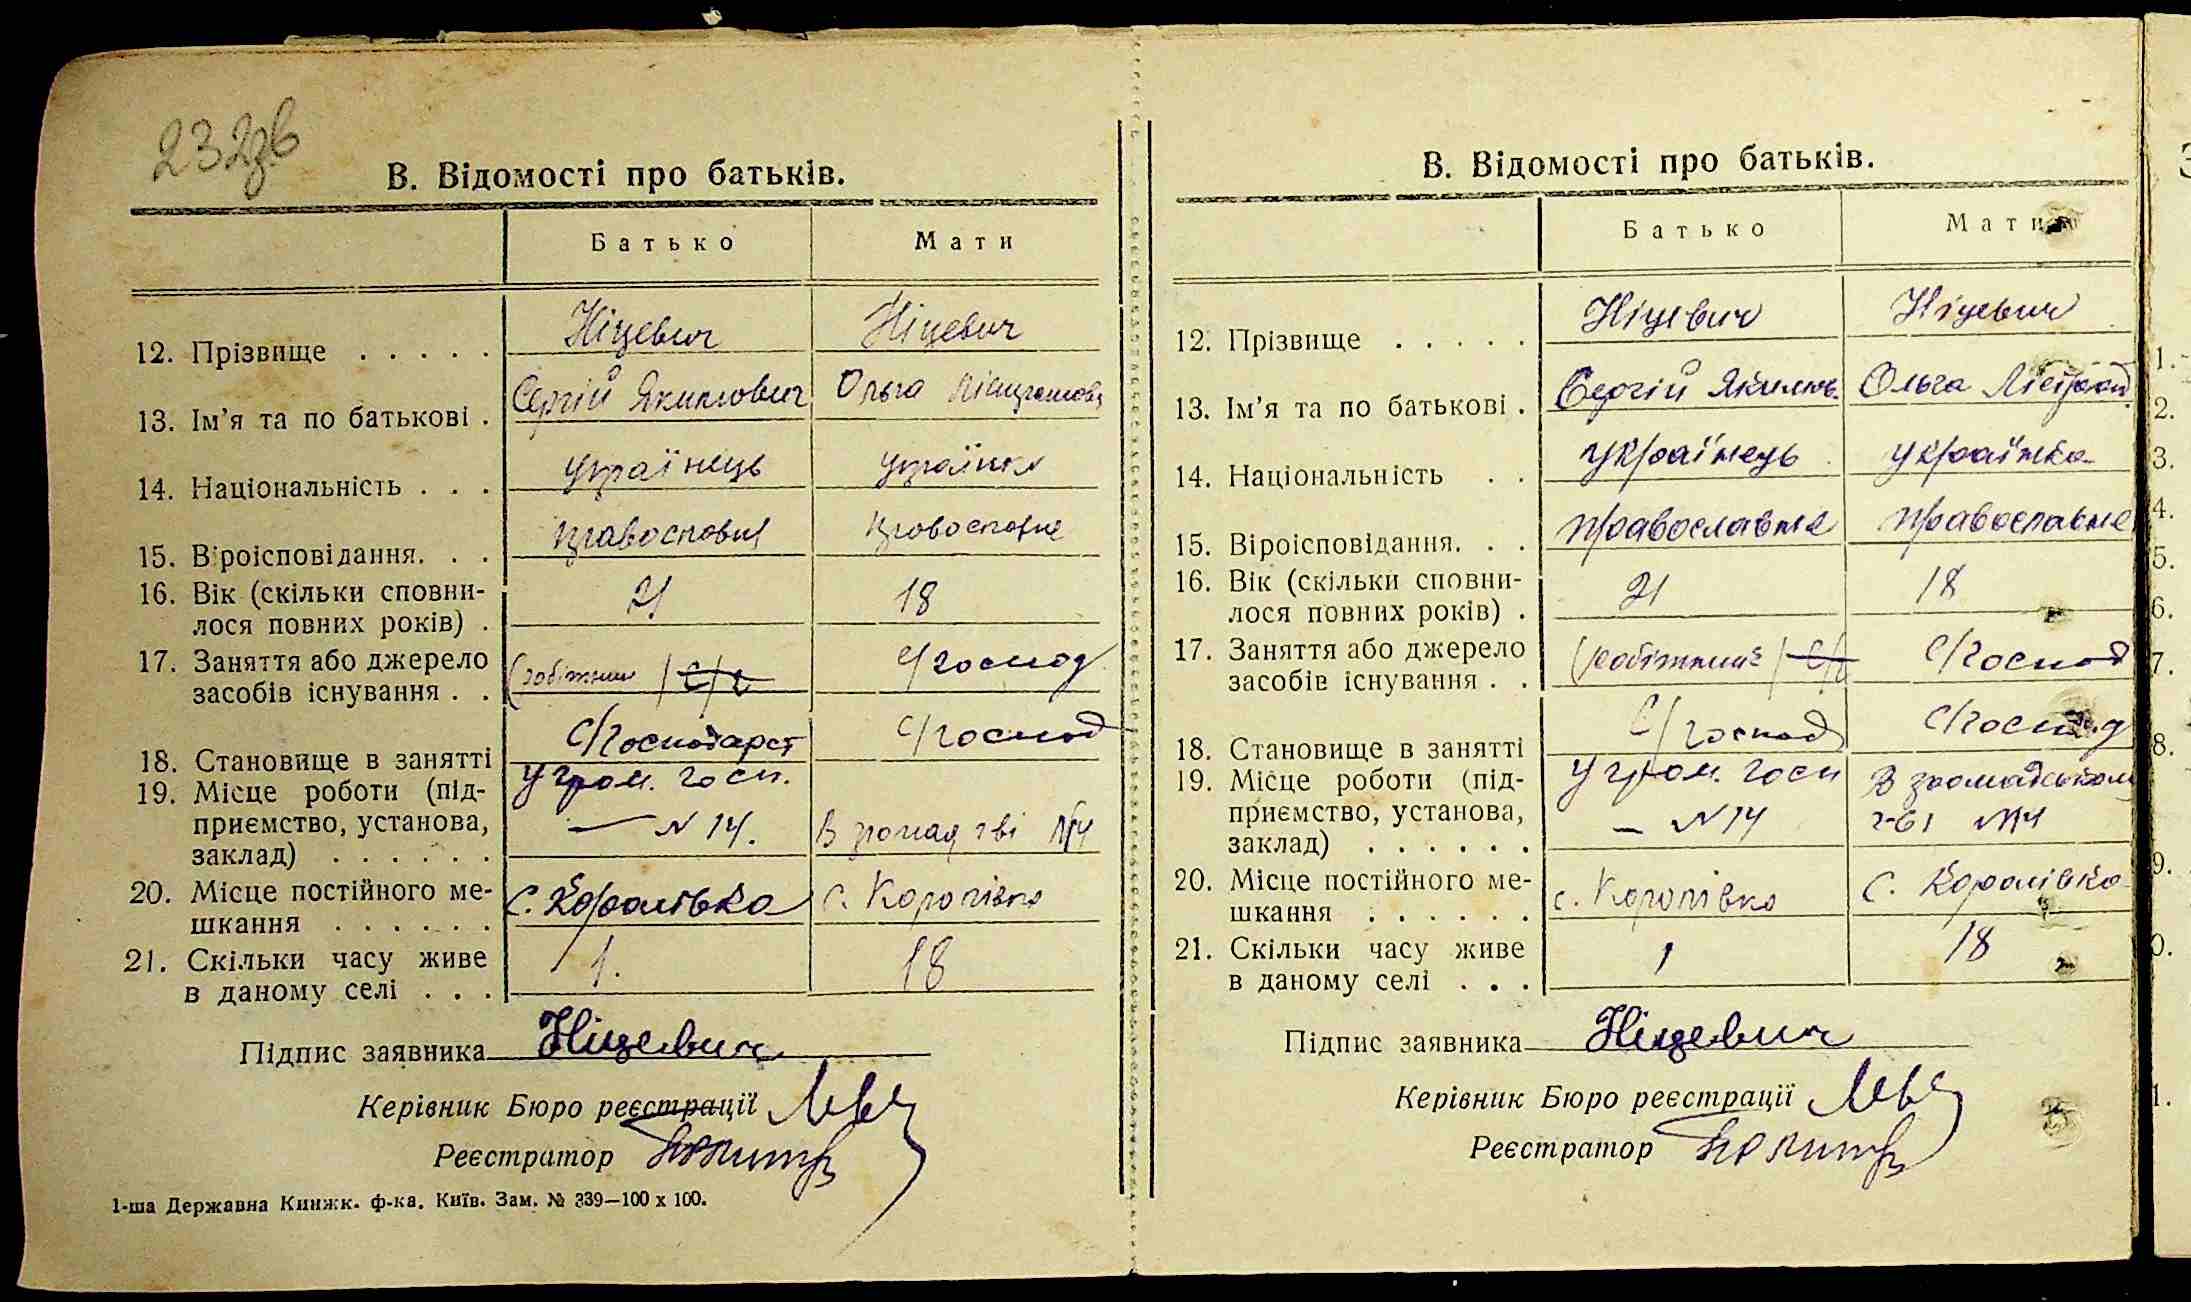 232зв
В. Відомості про батьків.
Батько Мати
12. Прізвище . . . . . Ніцевич Ніцевич
13. Ім'я та по батькові . Сергій Якимович Ольга
14. Національність . . . українець українка
15. Віроісповідання. . .
16. Вік (скільки сповни-
лося повних років) . 21 18
17. Заняття або джерело
засобів існування . . робітник с/г с/господ
18. Становище в занятті с/господарст с/господ
19. Місце роботи (під-
приємство, установа,
заклад) . . . . . . у гром. госп.
— N 14. В громад гві N14
20. Місце постійного ме-
шкання . . . . . . с. Королівка с. Королівка
21. Скільки часу живе
в даному селі . . . 1. 18
Підпис заявника Ніцевич
Керівник Бюро реєстрації
Реєстратор
1-ша Державна Книжк. ф-ка. Київ. Зам. № 339—100 х 100.
В. Відомості про батьків.
Батько Мати
12. Прізвище . . . . . Ніцевич Ніцевич
13. Ім'я та по батькові . Сергій Якимов. Ольга
14. Національність . . українець українка
15. Віроісповідання. . . православне православне
16. Вік (скільки сповни-
лося повних років) . 21 18
17. Заняття або джерело
засобів існування . . робітник с/г с/господ
18. Становище в занятті с/господ с/господ
19. Місце роботи (під-
приємство, установа,
заклад) . . . . . . у гром. госп В громадськом
— N 14 г-ві N14
20. Місце постійного ме-
шкання . . . . . . с. Королівка с. Королівка
21. Скільки часу живе
в даному селі . . . 1 18
Підпис заявника Ніцевич
Керівник Бюро реєстрації
Реєстратор